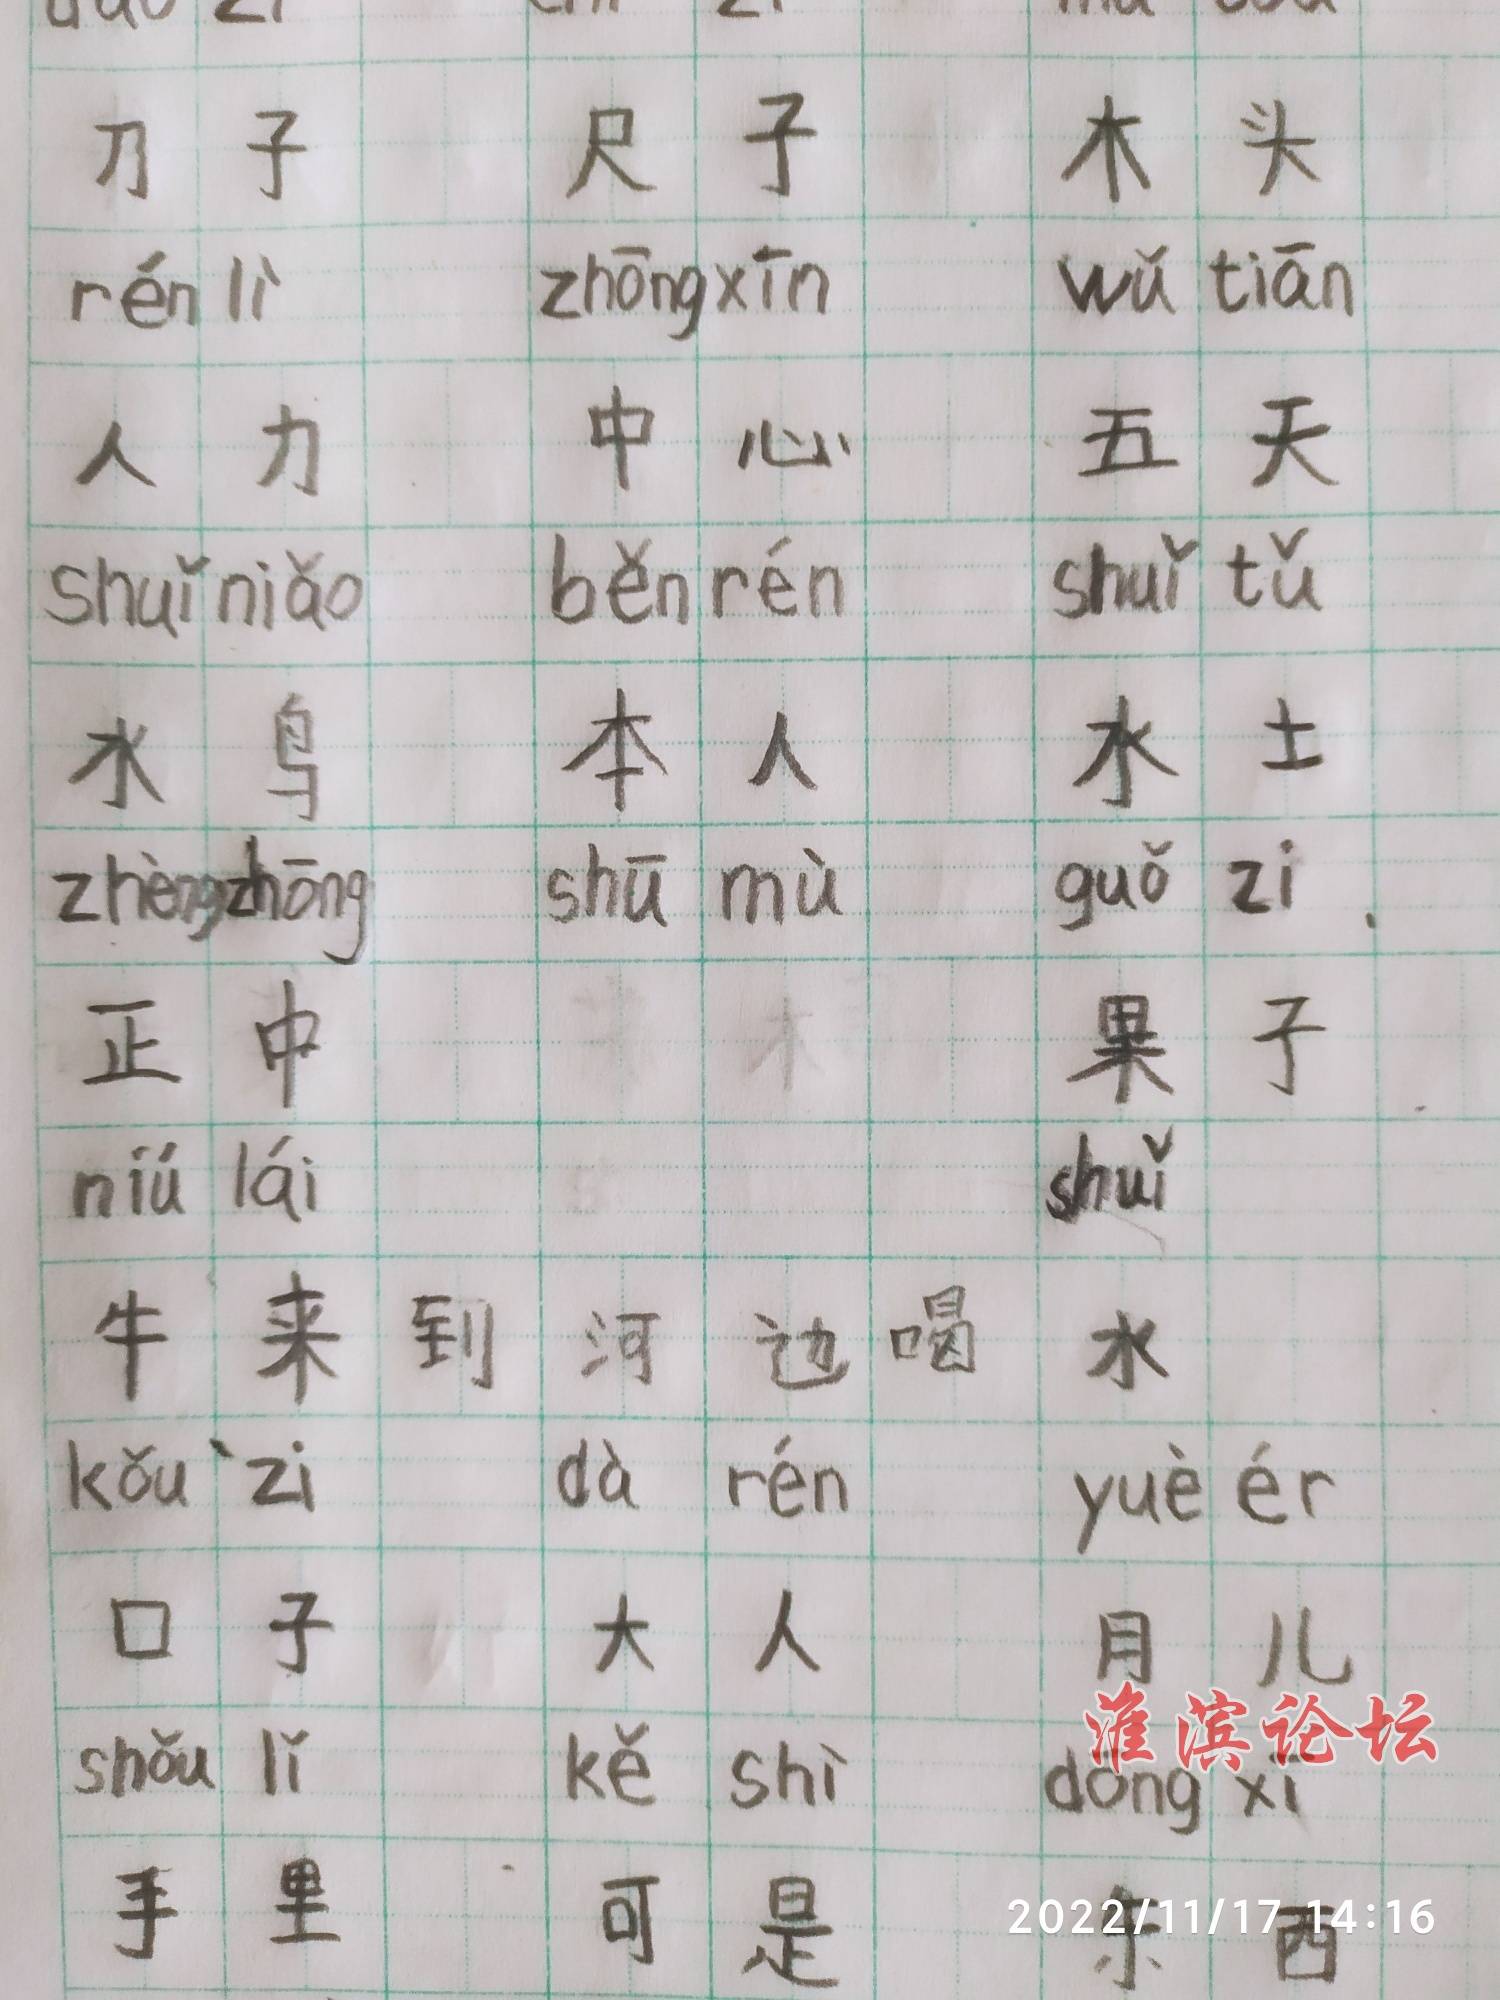 刀子 尺子 木头
rén lì zhōng xīn wǔ tiān
人力 中心 五天
shuǐ niǎo běn rén shuǐ tǔ
水鸟 本人 水土
zhèng zhōng shū mù guǒ zi
正中 木 果子
niú lái shuǐ
牛来到河边喝水
kǒu zi dà rén yuè ér
口子 大人 月儿
淮滨论坛
shǒu lǐ kě shì dōng xī
手里 可是 东西
2022/11/17 14:16